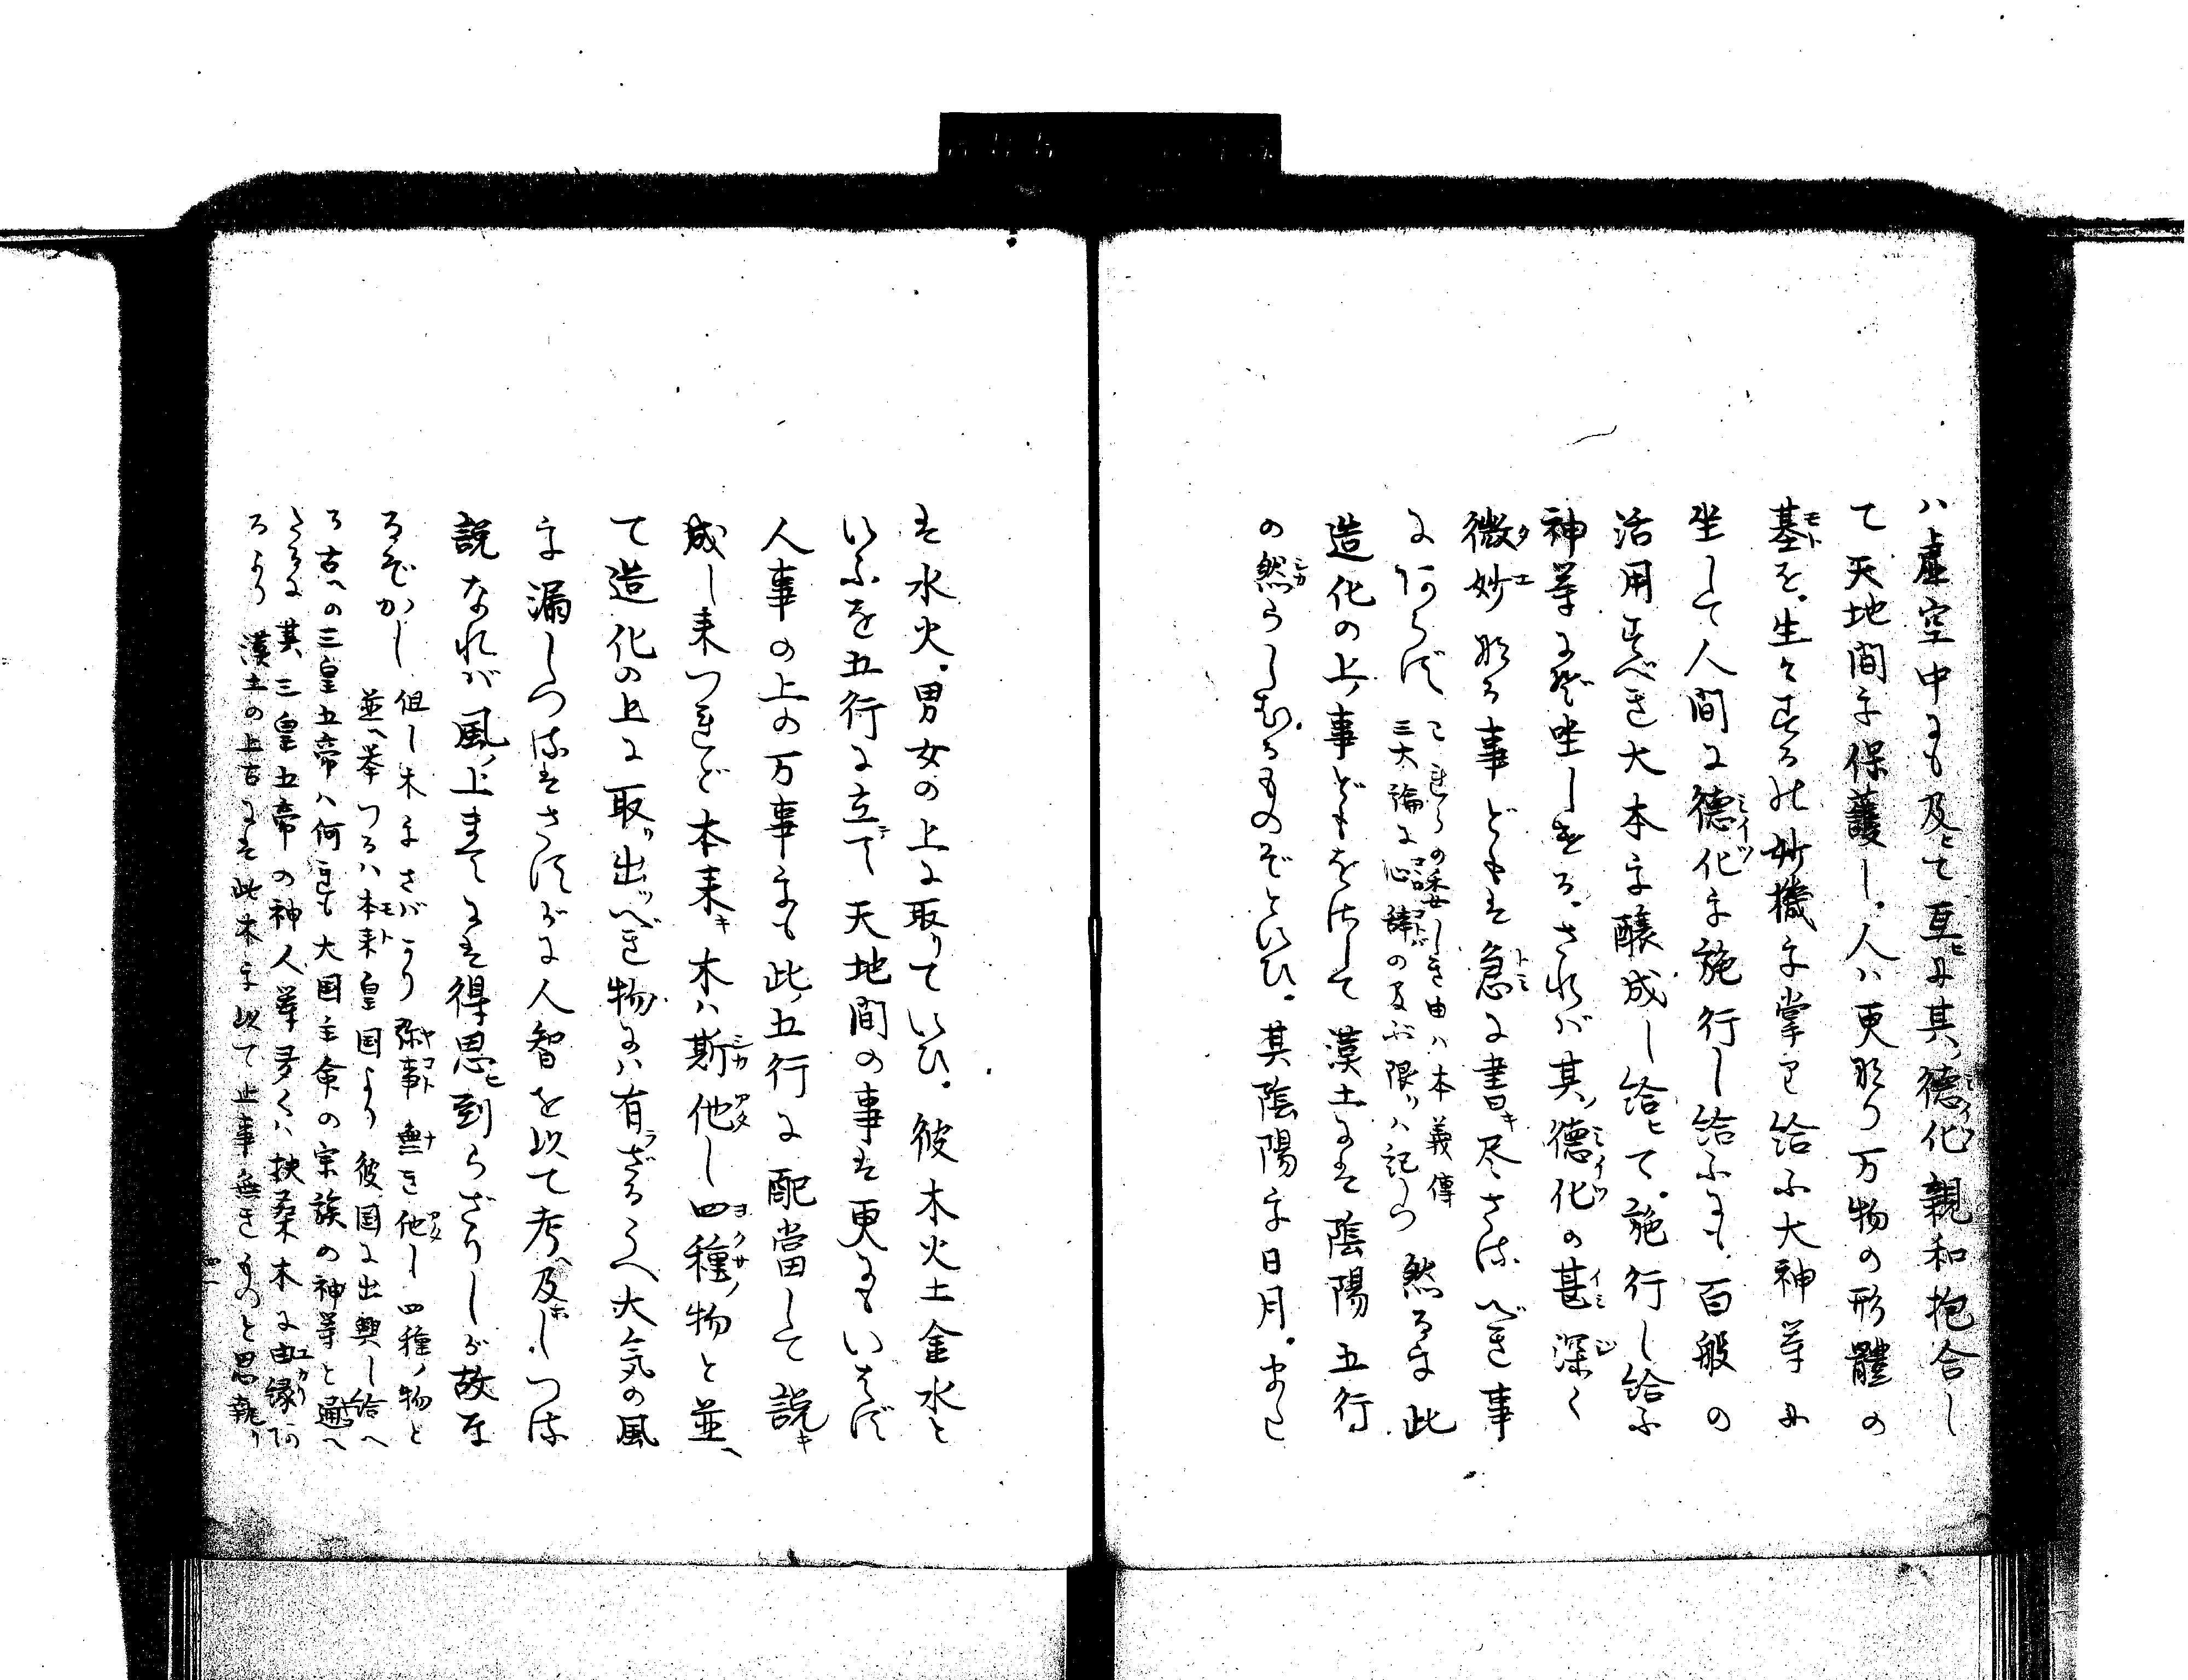 ハ虚空中にも及ヒて互ヒに其ノ徳化親和抱合し
て天地間を保護し。人ハ更なり万物の形體の
基を。生々する妙機を掌り給ふ大神等に
坐して人間に徳化を施行し給ふにも。百般の
活用すべき大本を醸成し給ヒて。施行し給ふ
神等にぞ坐しける。されば其ノ徳化の甚深く
微妙なる事どもは急に書キ尽さるべき事
にあらず
こ れらの委しき由ハ本義傳
三大論に心詞の及ぶ限りハ記しつ
然るを此
造化の上ノ事どもをして漢土には陰陽五行
の然らしむるものぞといひ。其陰陽を日月。また
は水火。男女の上に取りていひ。彼木火土金水と
いふを五行に立テて天地間の事は更にもいはず
人事の上の万事をも此ノ五行に配當して説キ
成し来つれど本来木ハ斯他し四種ノ物と並ヘ
て造化の上に取リ出ツべき物にハ有ラざるうへ大気の風
を漏しつるはさすがに人智を以て考ヘ及ボしつる
説なれば風ノ上までには得思ヒ到らざりしが故な
るぞかし
但し木をさばかり弥事無き他し四種ノ物と
並ヘ挙つるハ本来皇国より彼国に出興し給へ
る古への三皇五帝ハ何れも大国主命の宗族の神等と通へ
きるに其ノ三皇五帝の神人等多くハ扶桑木に由縁あ
るより漢土の上古には此木を以て止事無きものと思ヒ執リ